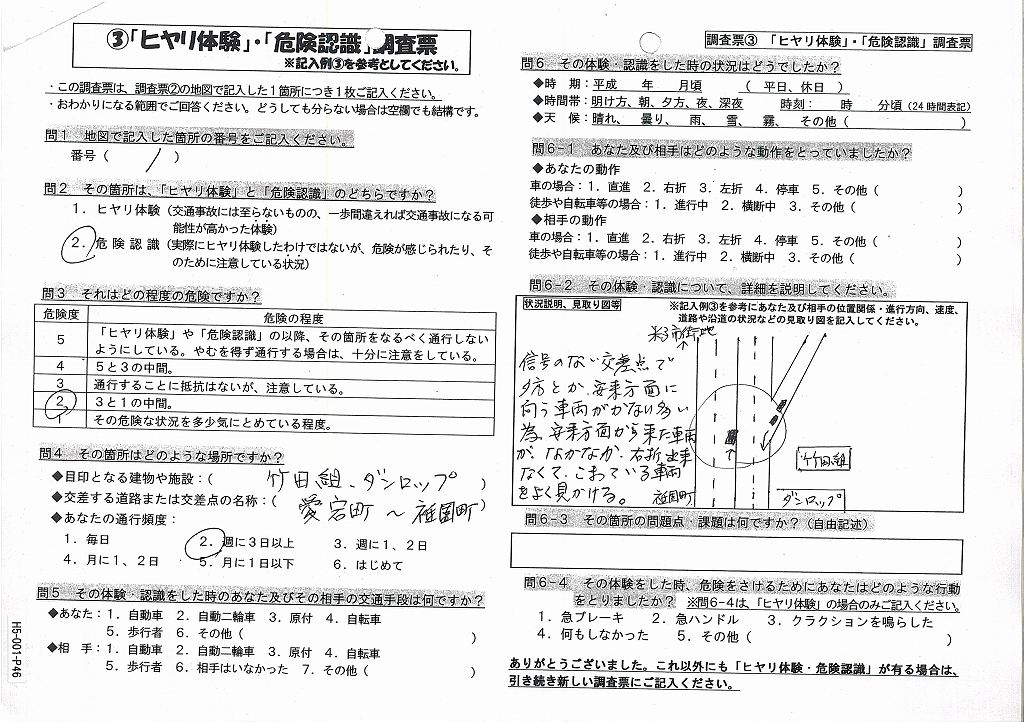 ③「ヒヤリ体験」・「危険認識」調査票
※記入例③を参考としてください。
・この調査票は、調査票②の地図で記入した1箇所につき1枚ご記入ください。
・おわかりになる範囲でご回答ください。どうしても分らない場合は空欄でも結構です。
問1 地図で記入した箇所の番号をご記入ください。
番号( 1 )
問2 その箇所は、「ヒヤリ体験」と「危険認識」のどちらですか？
1. ヒヤリ体験(交通事故には至らないものの、一歩間違えれば交通事故になる可
能性が高かった体験)
2. 危険認識(実際にヒヤリ体験したわけではないが、危険が感じられたり、そ
のために注意している状況)
問3 それはどの程度の危険ですか？
危険度 危険の程度
5 「ヒヤリ体験」や「危険認識」の以降、その箇所をなるべく通行しない
ようにしている。やむを得ず通行する場合は、十分に注意をしている。
4 5と3の中間。
3 通行することに抵抗はないが、注意している。
2 3と1の中間。
1 その危険な状況を多少気にとめている程度。
問4 その箇所はどのような場所ですか？
◆目印となる建物や施設：( 竹田組、ダンロップ )
◆交差する道路または交差点の名称：( 愛宕町 ～ 祇園町 )
◆あなたの通行頻度：
1. 毎日 2. 週に3日以上 3. 週に1、2日
4. 月に1、2日 5. 月に1日以下 6. はじめて
問5 その体験・認識をした時のあなた及びその相手の交通手段は何ですか？
◆あなた：1. 自動車 2. 自動二輪車 3. 原付 4. 自転車
5. 歩行者 6. その他( )
◆相 手：1. 自動車 2. 自動二輪車 3. 原付 4. 自転車
5. 歩行者 6. 相手はいなかった 7. その他( )
H5-001-P46
調査票③ 「ヒヤリ体験」・「危険認識」調査票
問6 その体験・認識をした時の状況はどうでしたか？
◆時 期：平成 年 月頃 ( 平日、休日 )
◆時間帯：明け方、朝、夕方、夜、深夜 時刻： 時 分頃(24時間表記)
◆天 候：晴れ、 曇り、 雨、 雪、 霧、 その他( )
問6-1 あなた及び相手はどのような動作をとっていましたか？
◆あなたの動作
車の場合：1. 直進 2. 右折 3. 左折 4. 停車 5. その他( )
徒歩や自転車等の場合：1. 進行中 2. 横断中 3. その他( )
◆相手の動作
車の場合：1. 直進 2. 右折 3. 左折 4. 停車 5. その他( )
徒歩や自転車等の場合：1. 進行中 2. 横断中 3. その他( )
問6-2 その体験・認識について、詳細を説明してください。
状況説明、見取り図等 ※記入例③を参考にあなた及び相手の位置関係・進行方向、速度、
道路や沿道の状況などの見取り図を記入してください。
米子市街地
信号のない交差点で
夕方とか、安来方面に
向う車両がかなり多い
為、安来方面から来た車両
が、なかなか、右折出来
なくて、こまっている車両
をよく見かける。
祇園町
竹田組
ダンロップ
問6-3 その箇所の問題点・課題は何ですか？(自由記述)
問6-4 その体験をした時、危険をさけるためにあなたはどのような行動
をとりましたか？ ※問6-4は、「ヒヤリ体験」の場合のみご記入ください。
1. 急ブレーキ 2. 急ハンドル 3. クラクションを鳴らした
4. 何もしなかった 5. その他( )
ありがとうございました。これ以外にも「ヒヤリ体験・危険認識」が有る場合は、
引き続き新しい調査票にご記入ください。